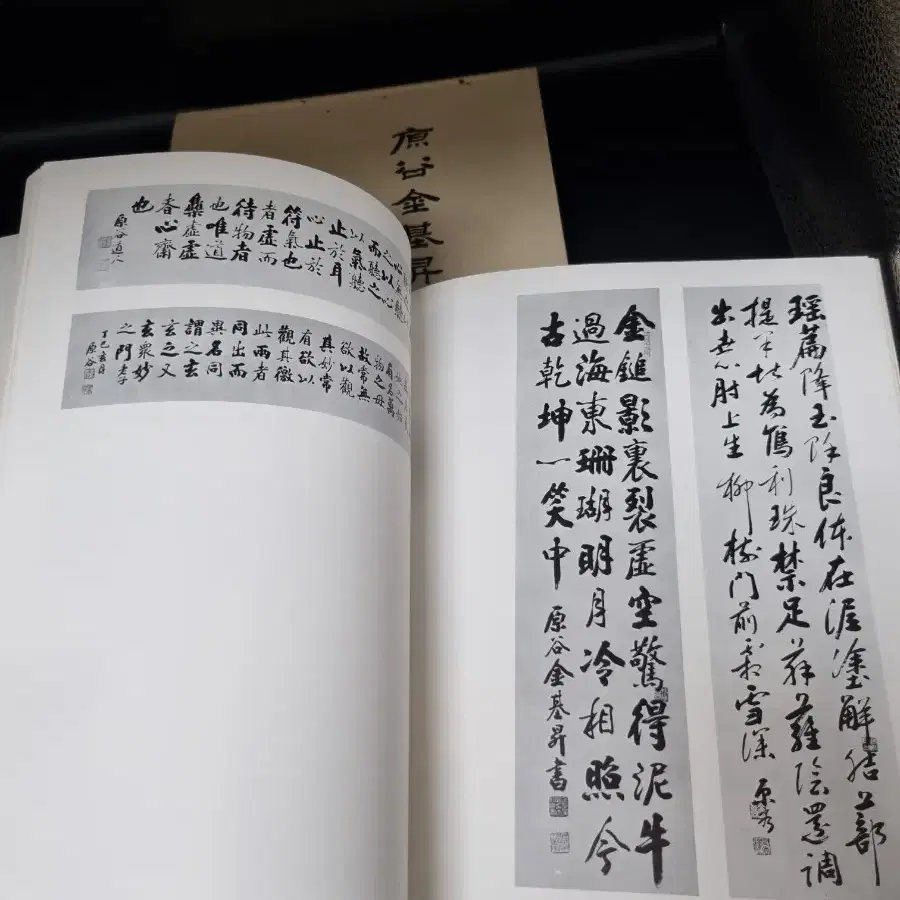 原谷金基昇
以氣聽
止於耳
心止於
符氣也
者虛而
待物者
也唯道
集虛虛
者心齋
也
原谷道人
物之母
故常無
欲以觀
其妙常
有欲以
觀其徼
此兩者
同出而
異名同
謂之玄
玄之又
玄眾妙
之門 老子
丁巳
原谷
瑤篇降玉除良 在渥塗解結
提 為 利珠禁足 蘿陰還調
出 肘上生柳 門前 雪深 原谷
金鎚影裏裂虛空驚得泥牛
過海東珊瑚明月冷相照今
古乾坤一笑中 原谷金基昇書